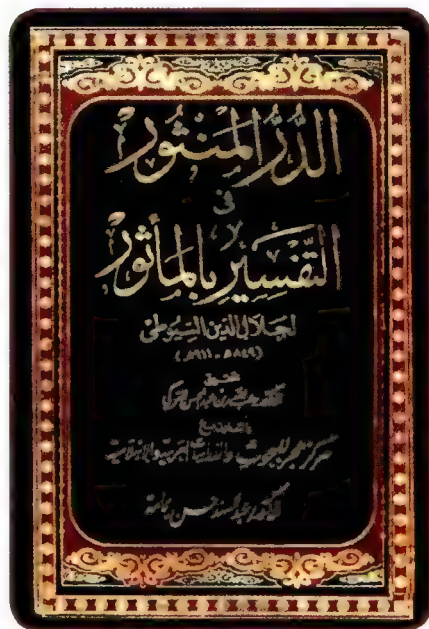 الدُّرُّ المَنْثُور
في
التَّفْسِير بِالمَأْثُور
لجلال الدين السيوطي
(٨٤٩هـ - ٩١١هـ)
تحقيق
الدكتور عبد الله بن عبد المحسن التركي
بالتعاون مع
مركز هجر للبحوث والدراسات العربية والإسلامية
الدكتور عبد السند حسن يمامة